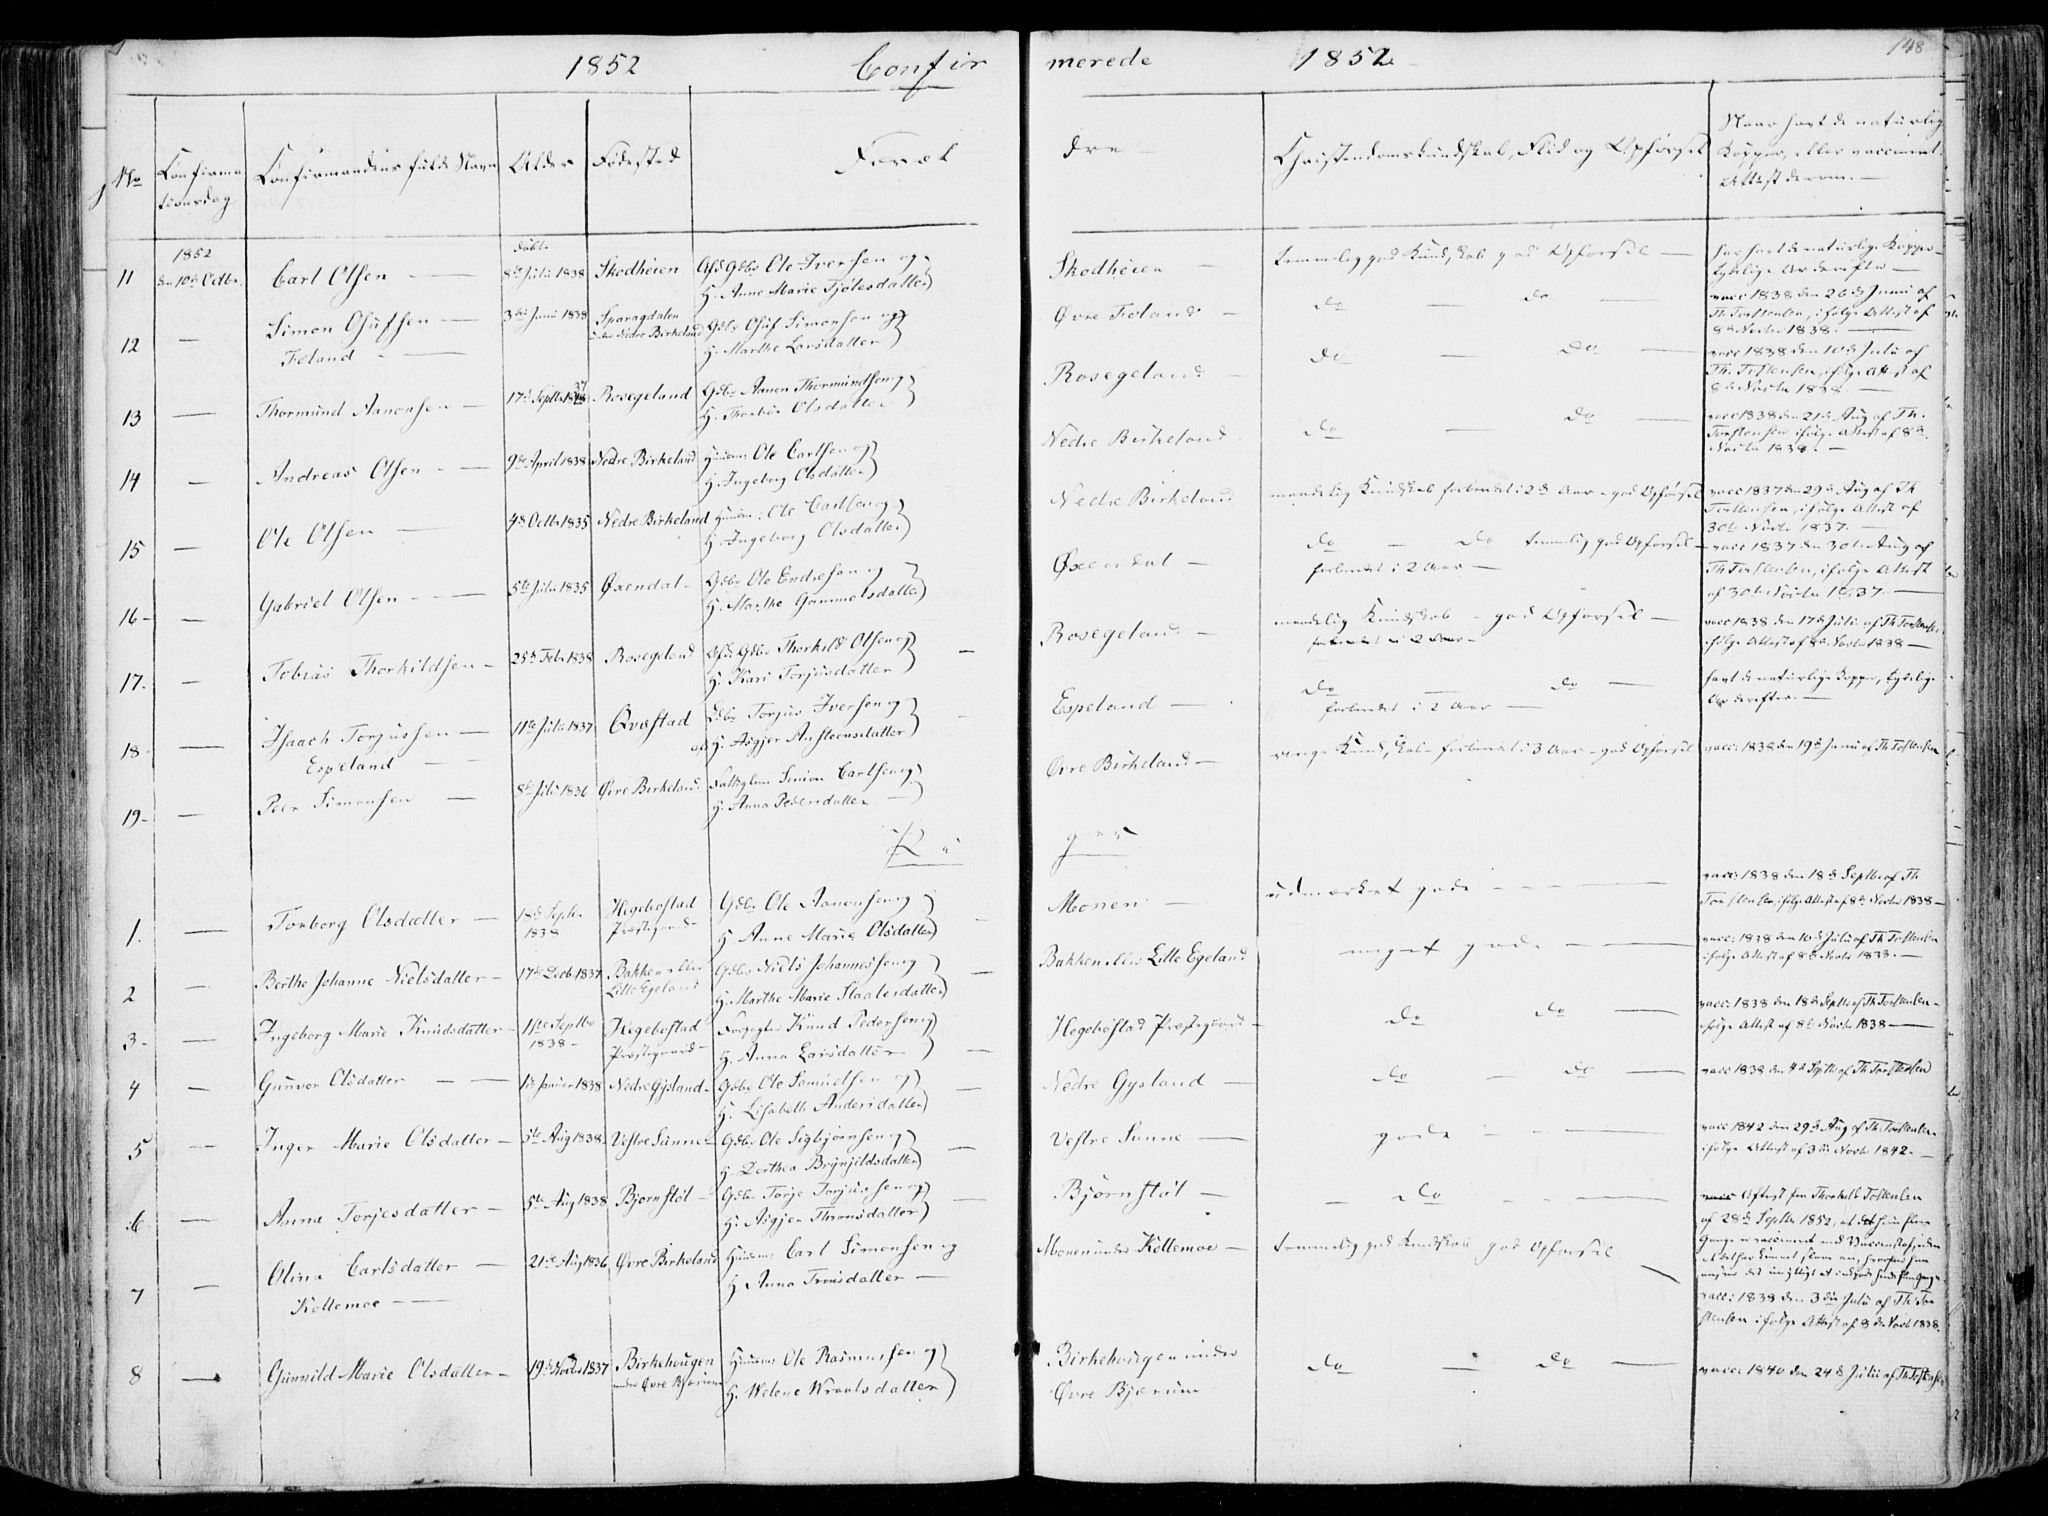 1852 Confir merede 1852
148
No Confirma tionsdag Confirmandens fulde Navn Alder Fødested Foræl dre Christendomskundskab, Flid og Opførsel Naar havt de naturlige Kopper, eller vaccineret. Attest derom.
1852 døbt
11 den 10de Octbr. Carl Olsen 8de Julii 1838 Skodheien Gdbr Ole Iversen og H. Anne Marie Tjølesdatter Skodheien temmelig god Kundskab god Opførsel har havt de naturlige Kopper tydelige Ar derefter
12 Simon Osufsen Feland 3die Juni 1838 Sparagdalen under Nedre Birkeland Gdbr Osuf Simonsen og H. Marthe Larsdatter Øvre Feland do do vacc 1838 den 26de Junii af Th. Torstensen, ifølge Attest af 8de Novbr 1838.
13 Thormund Aanonsen 17de Septbr 1837 Rosegeland Gdbr Aanon Thormundsen og H. Thorbor Olsdatter Rosegeland do do vacc 1838 den 10de Julii af Th. Torstensen, ifølge Attest af 8de Novbr 1838
14 Andreas Olsen 9de April 1838 Nedre Birkeland Huusm: Ole Carlsen og H. Ingeborg Olsdatter Nedre Birkeland do do vacc 1838 den 21de Aug af Th. Torstensen ifølge Attest af 8de Novbr 1838.
15 Ole Olsen 4de Octbr 1835 Nedre Birkeland Huusm: Ole Carlsen og H. Ingeborg Olsdatter Nedre Birkeland maadelig Kundskab forberedet i 2de Aar - god Opførsel vacc 1837 den 29de Aug af Th Torstensen, ifølge Attest af 30te Novbr 1837.
16 Gabriel Olsen 5te Julii 1835 Øxendal Gdbr Ole Endresen og H. Marthe Gammelsdatter Øxendal do do temmelig god Opførsel forberedet i 2 Aar vacc 1837 den 30te Aug af Th Torstensen, ifølge Attest af 30te Novbr 1837.
17. Tobias Thorkildsen 25de Febr 1838 Rosegeland Gdbr Thorkild Olsen og H. Kari Torjusdatter Rosegeland maadelig Kundskab - god Opførsel forberedet i 2 Aar vacc 1838 den 17de Julii af Th Torstensen ifølge Attest af 8de Novbr 1838
18 Isaach Torjussen Espeland 11te Julii 1837 Qvæstad Gdbr Torjus Iversen og H. Asgjer Ansteensdatter Espeland do do forberedet i 2 Aar havt de naturlige Kopper, tydelige Ar derefter.
19 Peer Simonsen 8de Julii 1836 Øvre Birkeland Fattiglem Simon Carlsen og H. Anna Pedersdatter Øvre Birkeland ringe Kundskab - forberedet i 3 Aar - god Opførsel vacc: 1838 den 19de Junii af Th Torstensen
Pi ger
1. Torborg Olsdatter 18de Septbr 1838 Hegebostad Præstegaard Gdbr Ole Aanonsen og H Anne Marie Olsdatter Monen udmærket gode vacc: 1838 den 18de Septbr af Th Torstensen, ifølge Attest af 8de Novbr 1838
2 Berthe Johanne Nielsdatter 17de Decb 1837 Bakken eller Lille Egeland Gdbr Niels Johannessen og H. Marthe Marie Staalesdatter Bakken eller Lille Egeland meget gode vacc: 1838 den 10de Julii af Th Torstensen ifølge Attest af 8de Novbr 1838.
3 Ingeborg Marie Knudsdatter 1ste Septbr 1838 Hegebostad Præstegaard Knud Pedersen og H. Anna Larsdatter Hegebøstad Præstegaard do do vacc: 1838 den 18de Septbr af Th Torstensen ifølge Attest af 8de Novbr 1838
4 Gunvor Olsdatter Januar 1838 Nedre Gysland Gdbr Ole Samuelsen og H. Lisabeth Andersdatter Nedre Gysland do do vacc 1838 den 4de Septbr af Th Torstensen
5 Inger Marie Olsdatter 5te Aug 1838 Vestre Sunne Gdbr Ole Sigbjørnsen og H. Dorthea Brynjildsdatter Vestre Sunne gode vacc 1842 den 29de Aug af Th. Torstensen ifølge Attest af 3die Novbr 1842.
6 Anna Torjesdatter 5te Aug 1838 Bjørnstøl Gdbr Torje Torjussen og H. Asgjer Thronsdatter Bjørnstøl do Attest fra Thorkild Torstensen af 28de Septbr 1852, at hun flere Gange er vaccineret med
7 Olina Carlsdatter Kollemoe 21de Aug 1836 Øvre Birkeland Huusm: Carl Simonsen og H Anna Tronsdatter Monen under Kollemoe temmelig god Kundskab god Opførsel vacc: 1838 den 3die Julii af Th: Torstensen ifølge Attest af 8de Novb 1838.
8 Gunnild Marie Olsdatter 19de Novbr 1837 Birkehougen under Øvre Bjærum Huusm Ole Rasmussen og H. Helene Wraalsdatter Birkehougen under Øvre Bjærum do do vacc: 1840 den 24de Julii af Th Torstensen